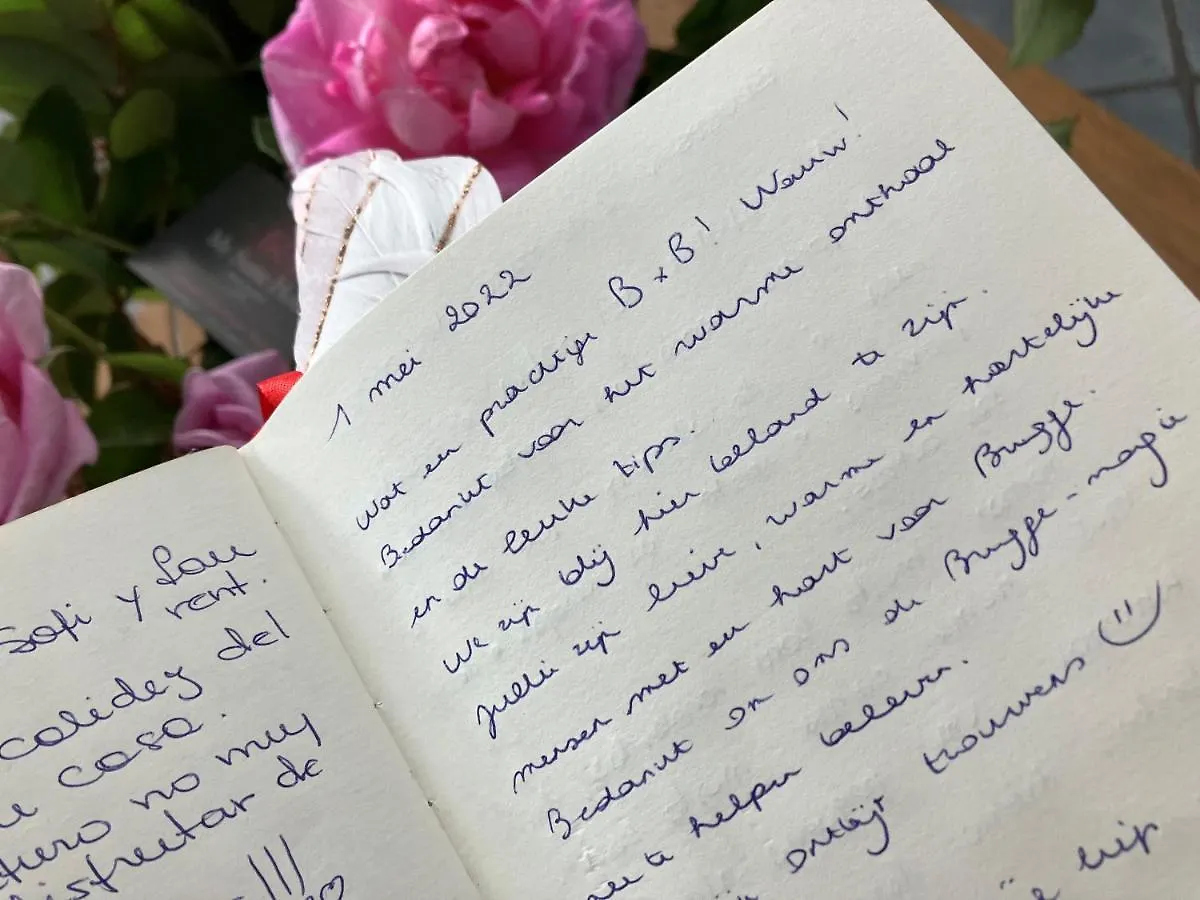 Sofi y Lau
rent.
calidez del
casa.
no muy
disfrutar de
!!!
1 mei 2022
Wat een prachtige B&B! Wauw!
Bedankt voor het warme onthaal
en de leuke tips.
We zijn blij hier beland te zijn.
Jullie zijn lieve, warme en hartelijke
mensen met een hart voor Brugge.
Bedankt om ons de Brugge-magie
mee te helpen beleven.
ontbijt trouwens